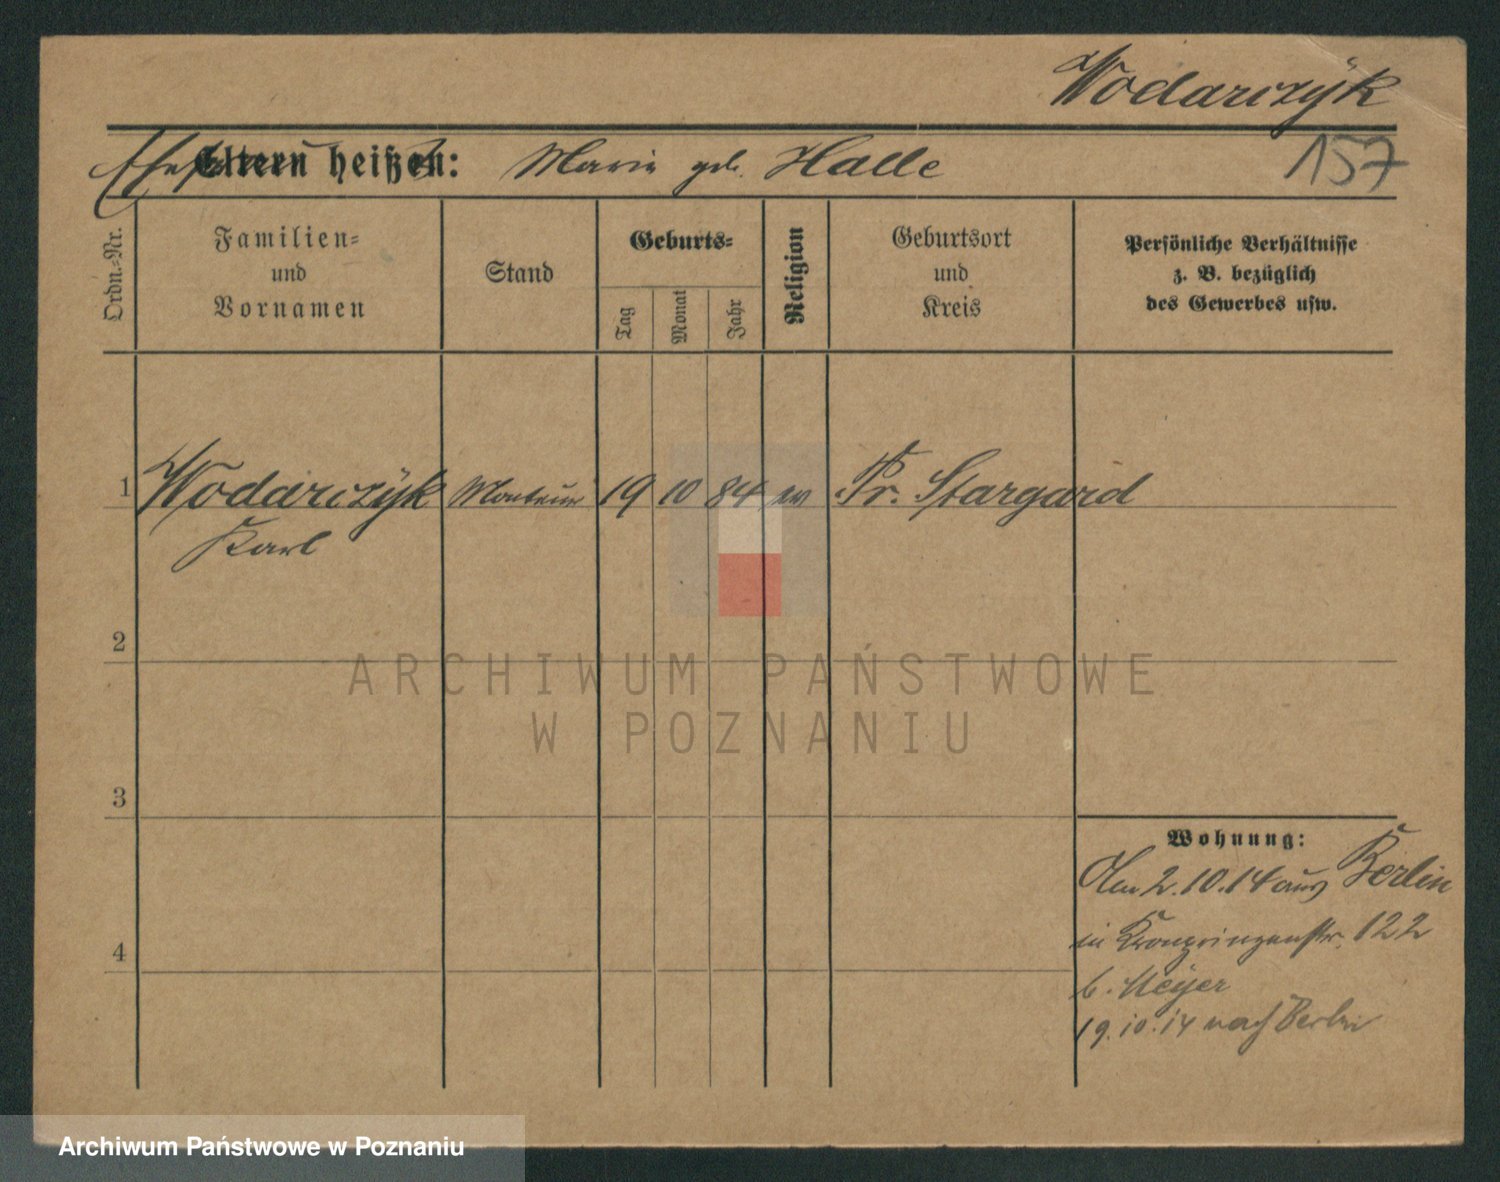 Wodarczÿk
Eltern heißen: Marie geb. Halle
157
Ordn.-Nr.
Familien-
und
Vornamen
Stand
Geburts-
Tag
Monat
Jahr
Religion
Geburtsort
und
Kreis
Persönliche Verhältnisse
z. B. bezüglich
des Gewerbes usw.
1 Wodarczÿk Monteur 19 10 84 ev Pr. Stargard
Karl
2
3
4
Wohnung:
Am 2.10.14 aus Berlin
in Kronprinzenstr. 122
b. Meÿer
19.10.14 nach Berlin
ARCHIWUM PAŃSTWOWE
W POZNANIU
Archiwum Państwowe w Poznaniu